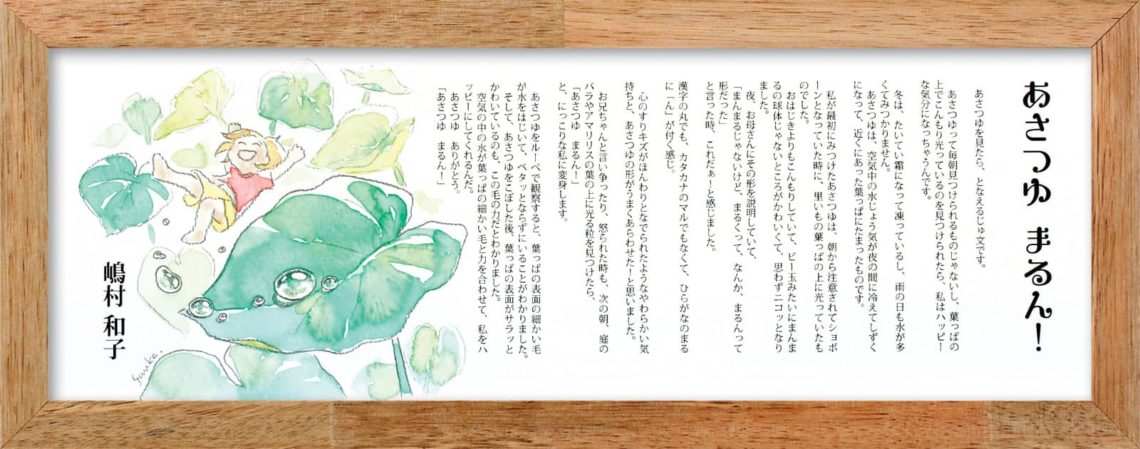 あさつゆ まるん!
あさつゆを見たら、となえるじゅ文です。
あさつゆって毎朝見つけられるものじゃないし、葉っぱの
上でこんもり光っているのを見つけられたら、私はハッピー
な気分になっちゃうんです。
冬は、たいてい霜になって凍っているし、雨の日も水が多
くてみつかりません。
あさつゆは、空気中の水じょう気が夜の間に冷えてしずく
になって、近くにあった葉っぱにたまったものです。
私が最初にみつけたあさつゆは、朝から注意されてショボ
ーンとなっていた時に、里いもの葉っぱの上に光っていたも
のでした。
おはじきよりもこんもりしていて、ビー玉みたいにまんま
るの球体じゃないところがかわいくて、思わずニコッとなり
ました。
夜、お母さんにその形を説明していて、
「まんまるじゃないけど、まるくって、なんか、まるんって
形だった」
と言った時、これだぁーと感じました。
漢字の丸でも、カタカナのマルでもなくて、ひらがなのまる
に「ん」が付く感じ。
心のすりキズがほんわりとなでられたようなやわらかい気
持ちと、あさつゆの形がうまくあらわせたーと思いました。
お兄ちゃんと言い争ったり、怒られた時も、次の朝、庭の
バラやアマリリスの葉の上に光る粒を見つけたら、
「あさつゆ まるん!」
と、にっこりな私に変身します。
あさつゆをルーペで観察すると、葉っぱの表面の細かい毛
が水をはじいて、ベタッとならずにいることがわかりました。
そして、あさつゆをこぼした後、葉っぱの表面がサラッと
かわいているのも、この毛の力だとわかりました。
空気の中の水が葉っぱの細かい毛と力を合わせて、私をハ
ッピーにしてくれるんだ。
あさつゆ ありがとう。
「あさつゆ まるん!」
嶋村 和子